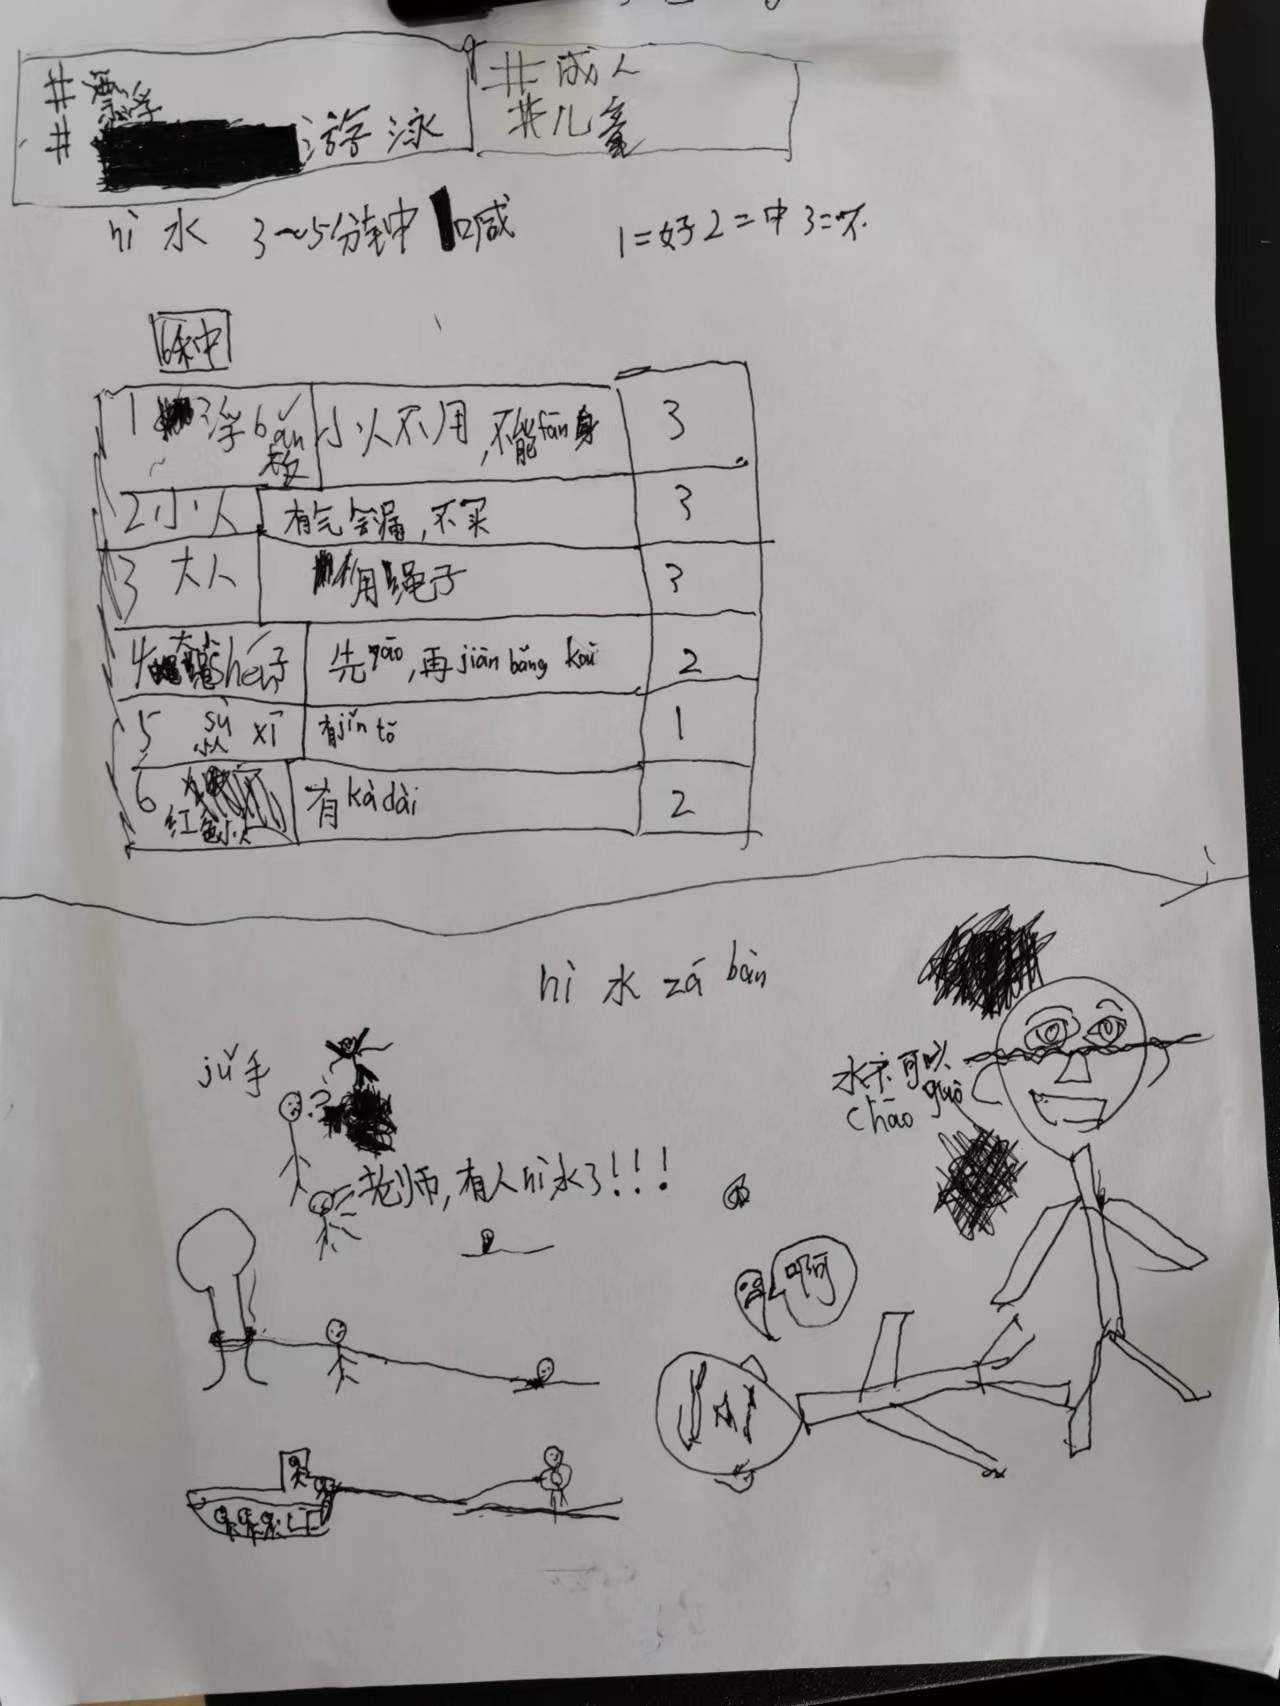 #漂浮
#游泳
#成人
#儿童
nì 水 3~5分钟中 喊
1=好2=中3=坏
6种
1 浮bǎn板 小人不用,不能fān身 3
2小人 有气会漏,不买 3
3 大人 用绳子 3
4 shéng子 先pāo,再jiān bǎng kǒu 2
5 sù xī 有jǐn tǒ 1
6 红色小人 有kǎ dài 2
nì 水 zá bàn
jǔ手
?
老师,有人nì水了!!!
水不可以
chāo guò
啊